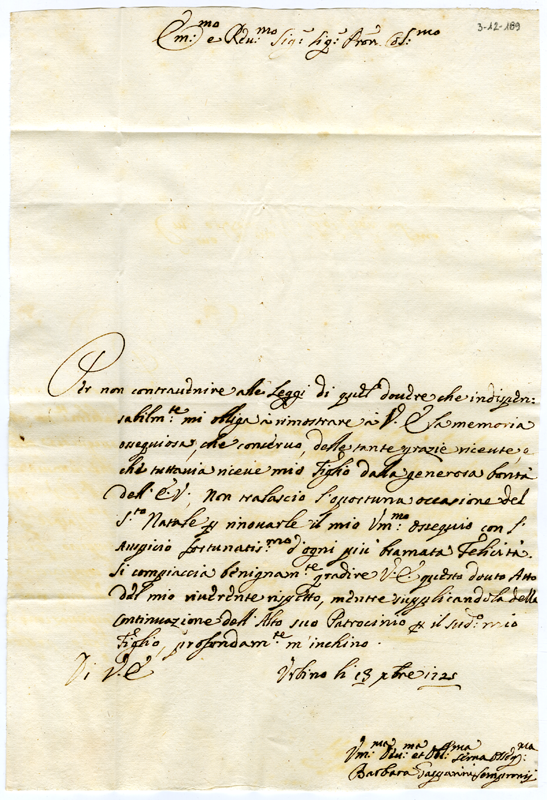 3-12-189
Em:mo e Reu:mo Sig:r Sig:r Pron Col:mo
Per non contrauenire alle Leggi di quel douere che indispen-
sabilm:te mi obliga à rimostrare à V. E. la memoria
ossequiosa, che conseruo, delle tante grazie riceute e
che tuttauia riceue mio Figlio dalla generosa bontà
dell' E. V., non tralascio l'oportuna occasione del
S:to Natale p rinouarle il mio Vm:mo ossequio con l'
Auspicio fortunatis:mo d'ogni più bramata Felicità.
Si compiaccia benignam:te gradire V. E. questo douto Atto
del mio riuerente rispetto, mentre supplicandola della
Continuazione dell' Alto suo Patrocinio p il sud:o mio
Figlio, profondam:te m'inchino.
Di V. E.
Vrbino li 13 xbre 1725
Vm:ma Deu:ma et Obl:ma serua
Barbara Semproni